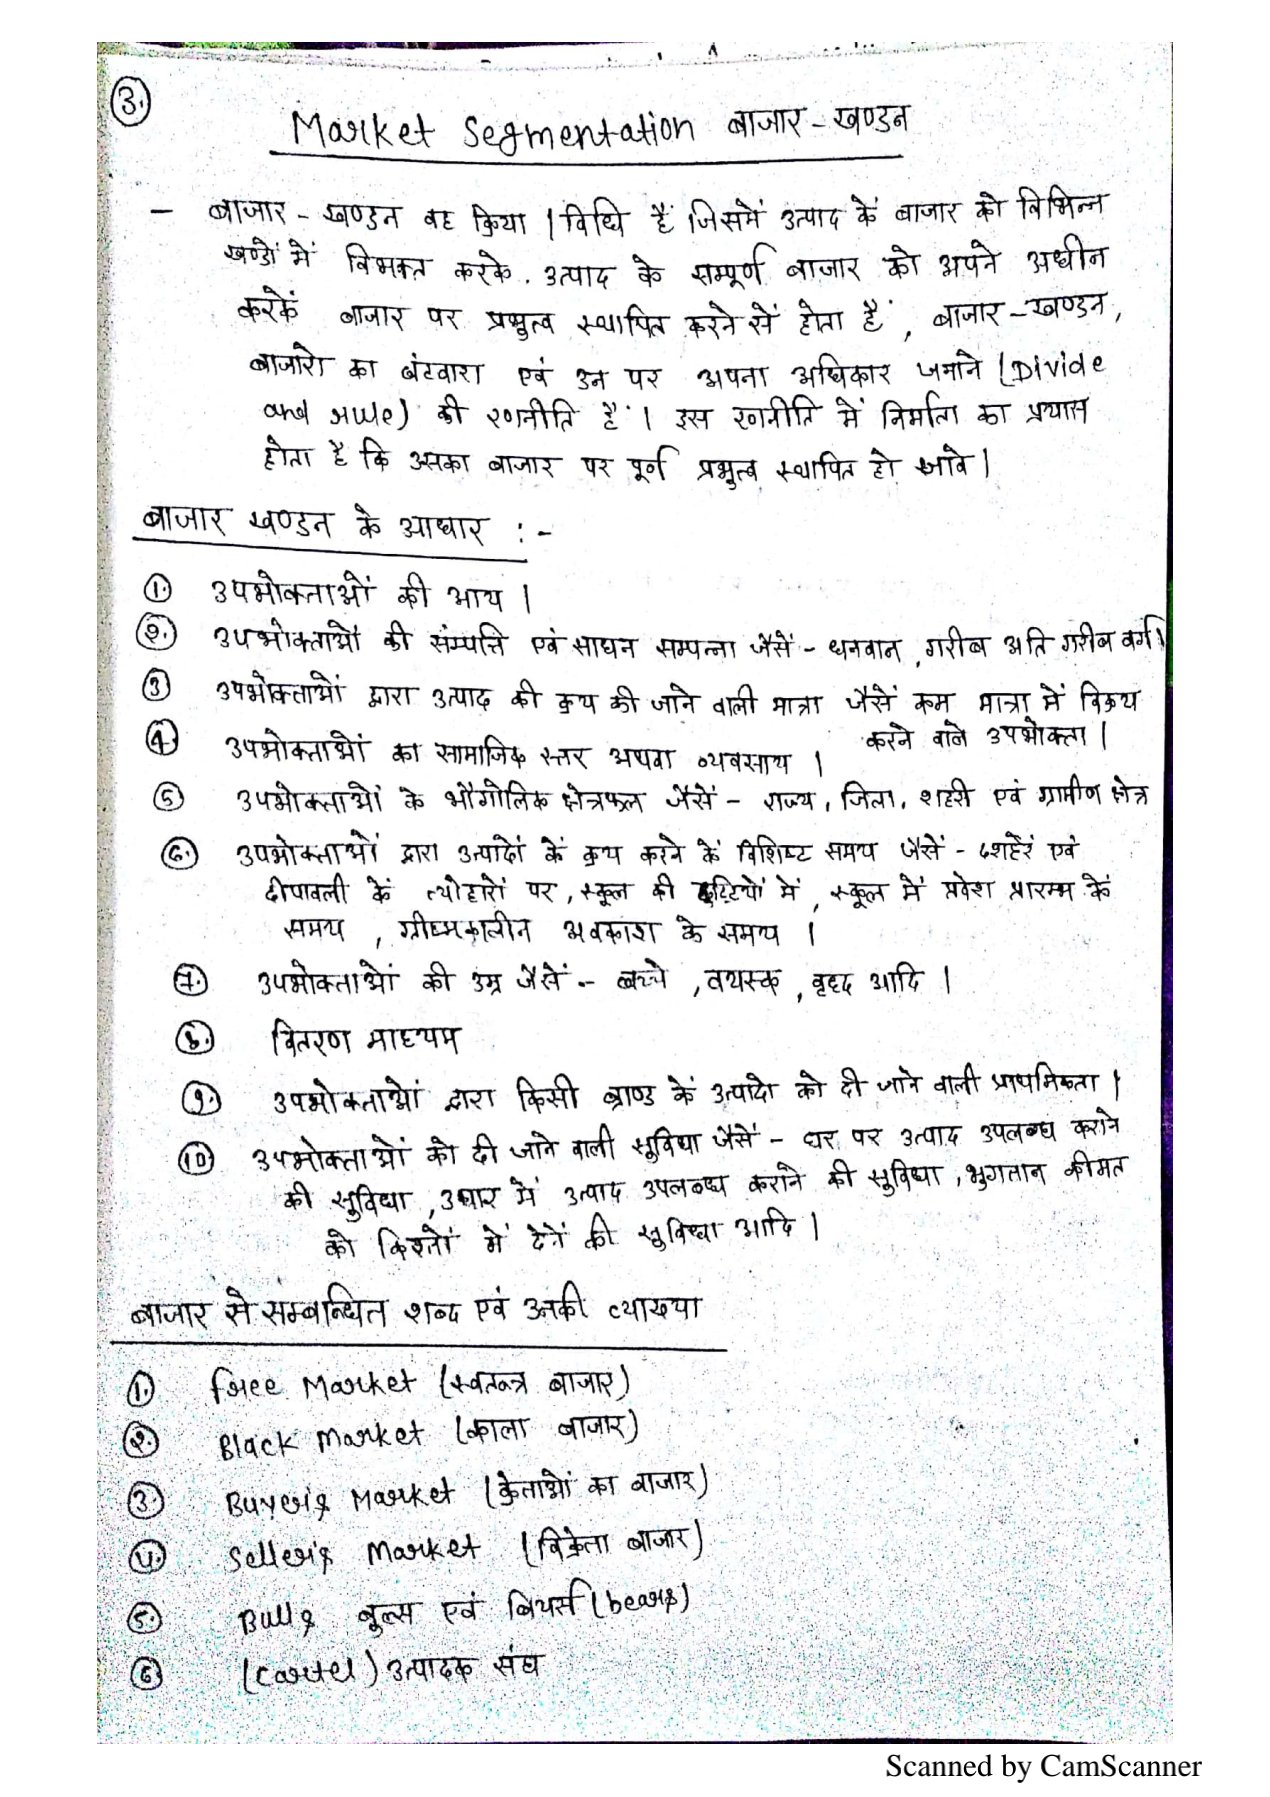 3.
Market Segmentation बाजार - खण्डन
- बाजार - खण्डन वह क्रिया / विधि हैं जिसमें उत्पाद कें बाजार को विभिन्न
खण्डों में विभक्त करके. उत्पाद के सम्पूर्ण बाजार को अपने अधीन
करकें बाजार पर प्रभुत्व स्थापित करने सें होता है , बाजार - खण्डन,
बाजारो का बंटवारा एवं उन पर अपना अधिकार जमाने (Divide
and rule) की रणनीति है । इस रणनीति में निर्माता का प्रयास
होता है कि उसका बाजार पर पूर्ण प्रभुत्व स्थापित हो जावे ।
बाजार खण्डन के आधार : -
1. उपभोक्ताओं की आय ।
2. उपभोक्ताओं की संम्पत्ति एवं साधन सम्पन्ना जैसें - धनवान , गरीब अति गरीब वर्ग ।
3 उपभोक्ताओं द्वारा उत्पाद की क्रय की जाने वाली मात्रा जैसें कम मात्रा में विक्रय
करने वाले उपभोक्ता ।
4. उपभोक्ताओं का सामाजिक स्तर अथवा व्यवसाय ।
5 उपभोक्ताओं के भौगोलिक क्षेत्रफल जैसें - राज्य , जिला , शहरी एवं ग्रामीण क्षेत्र
6. उपभोक्ताओं द्वारा उत्पादों कें क्रय करने कें विशिष्ट समय जैसें - दशहेरें एवं
दीपावली कें त्योहारों पर , स्कूल की छुट्टियों में , स्कूल में प्रवेश प्रारम्भ कें
समय , ग्रीष्मकालीन अवकाश के समय ।
7. उपभोक्ताओं की उम्र जैसें - बच्चे , वयस्क , वृद्ध आदि ।
8. वितरण माध्यम
9. उपभोक्ताओं द्वारा किसी ब्राण्ड कें उत्पादो को दी जाने वाली प्राथमिकता ।
10 उपभोक्ताओं को दी जाने वाली सुविधा जैसें - घर पर उत्पाद उपलब्ध कराने
की सुविधा , उधार में उत्पाद उपलब्ध कराने की सुविधा , भुगतान कीमत
को किश्तों में देनें की सुविधा आदि ।
बाजार से सम्बन्धित शब्द एवं उनकी व्याख्या
1. free Market (स्वतन्त्र बाजार)
2. Black Market (काला बाजार)
3. Buyer's Market (क्रेताओं का बाजार)
4. Seller's Market (विक्रेता बाजार)
5. Bulls बुल्स एवं बियर्स (bears)
6 (cartel) उत्पादक संघ
Scanned by CamScanner